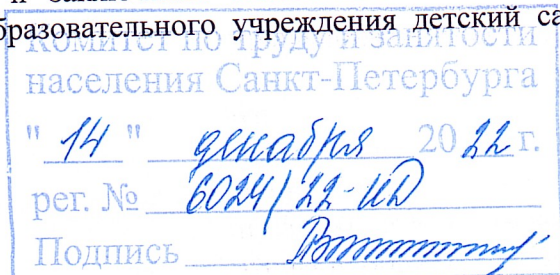 и Санкт
бразовательного учреждения детский са
Комитет по труду и занятости
населения Санкт-Петербурга
" 14 " декабря 2022 г.
рег. № 6024/22-КД
Подпись